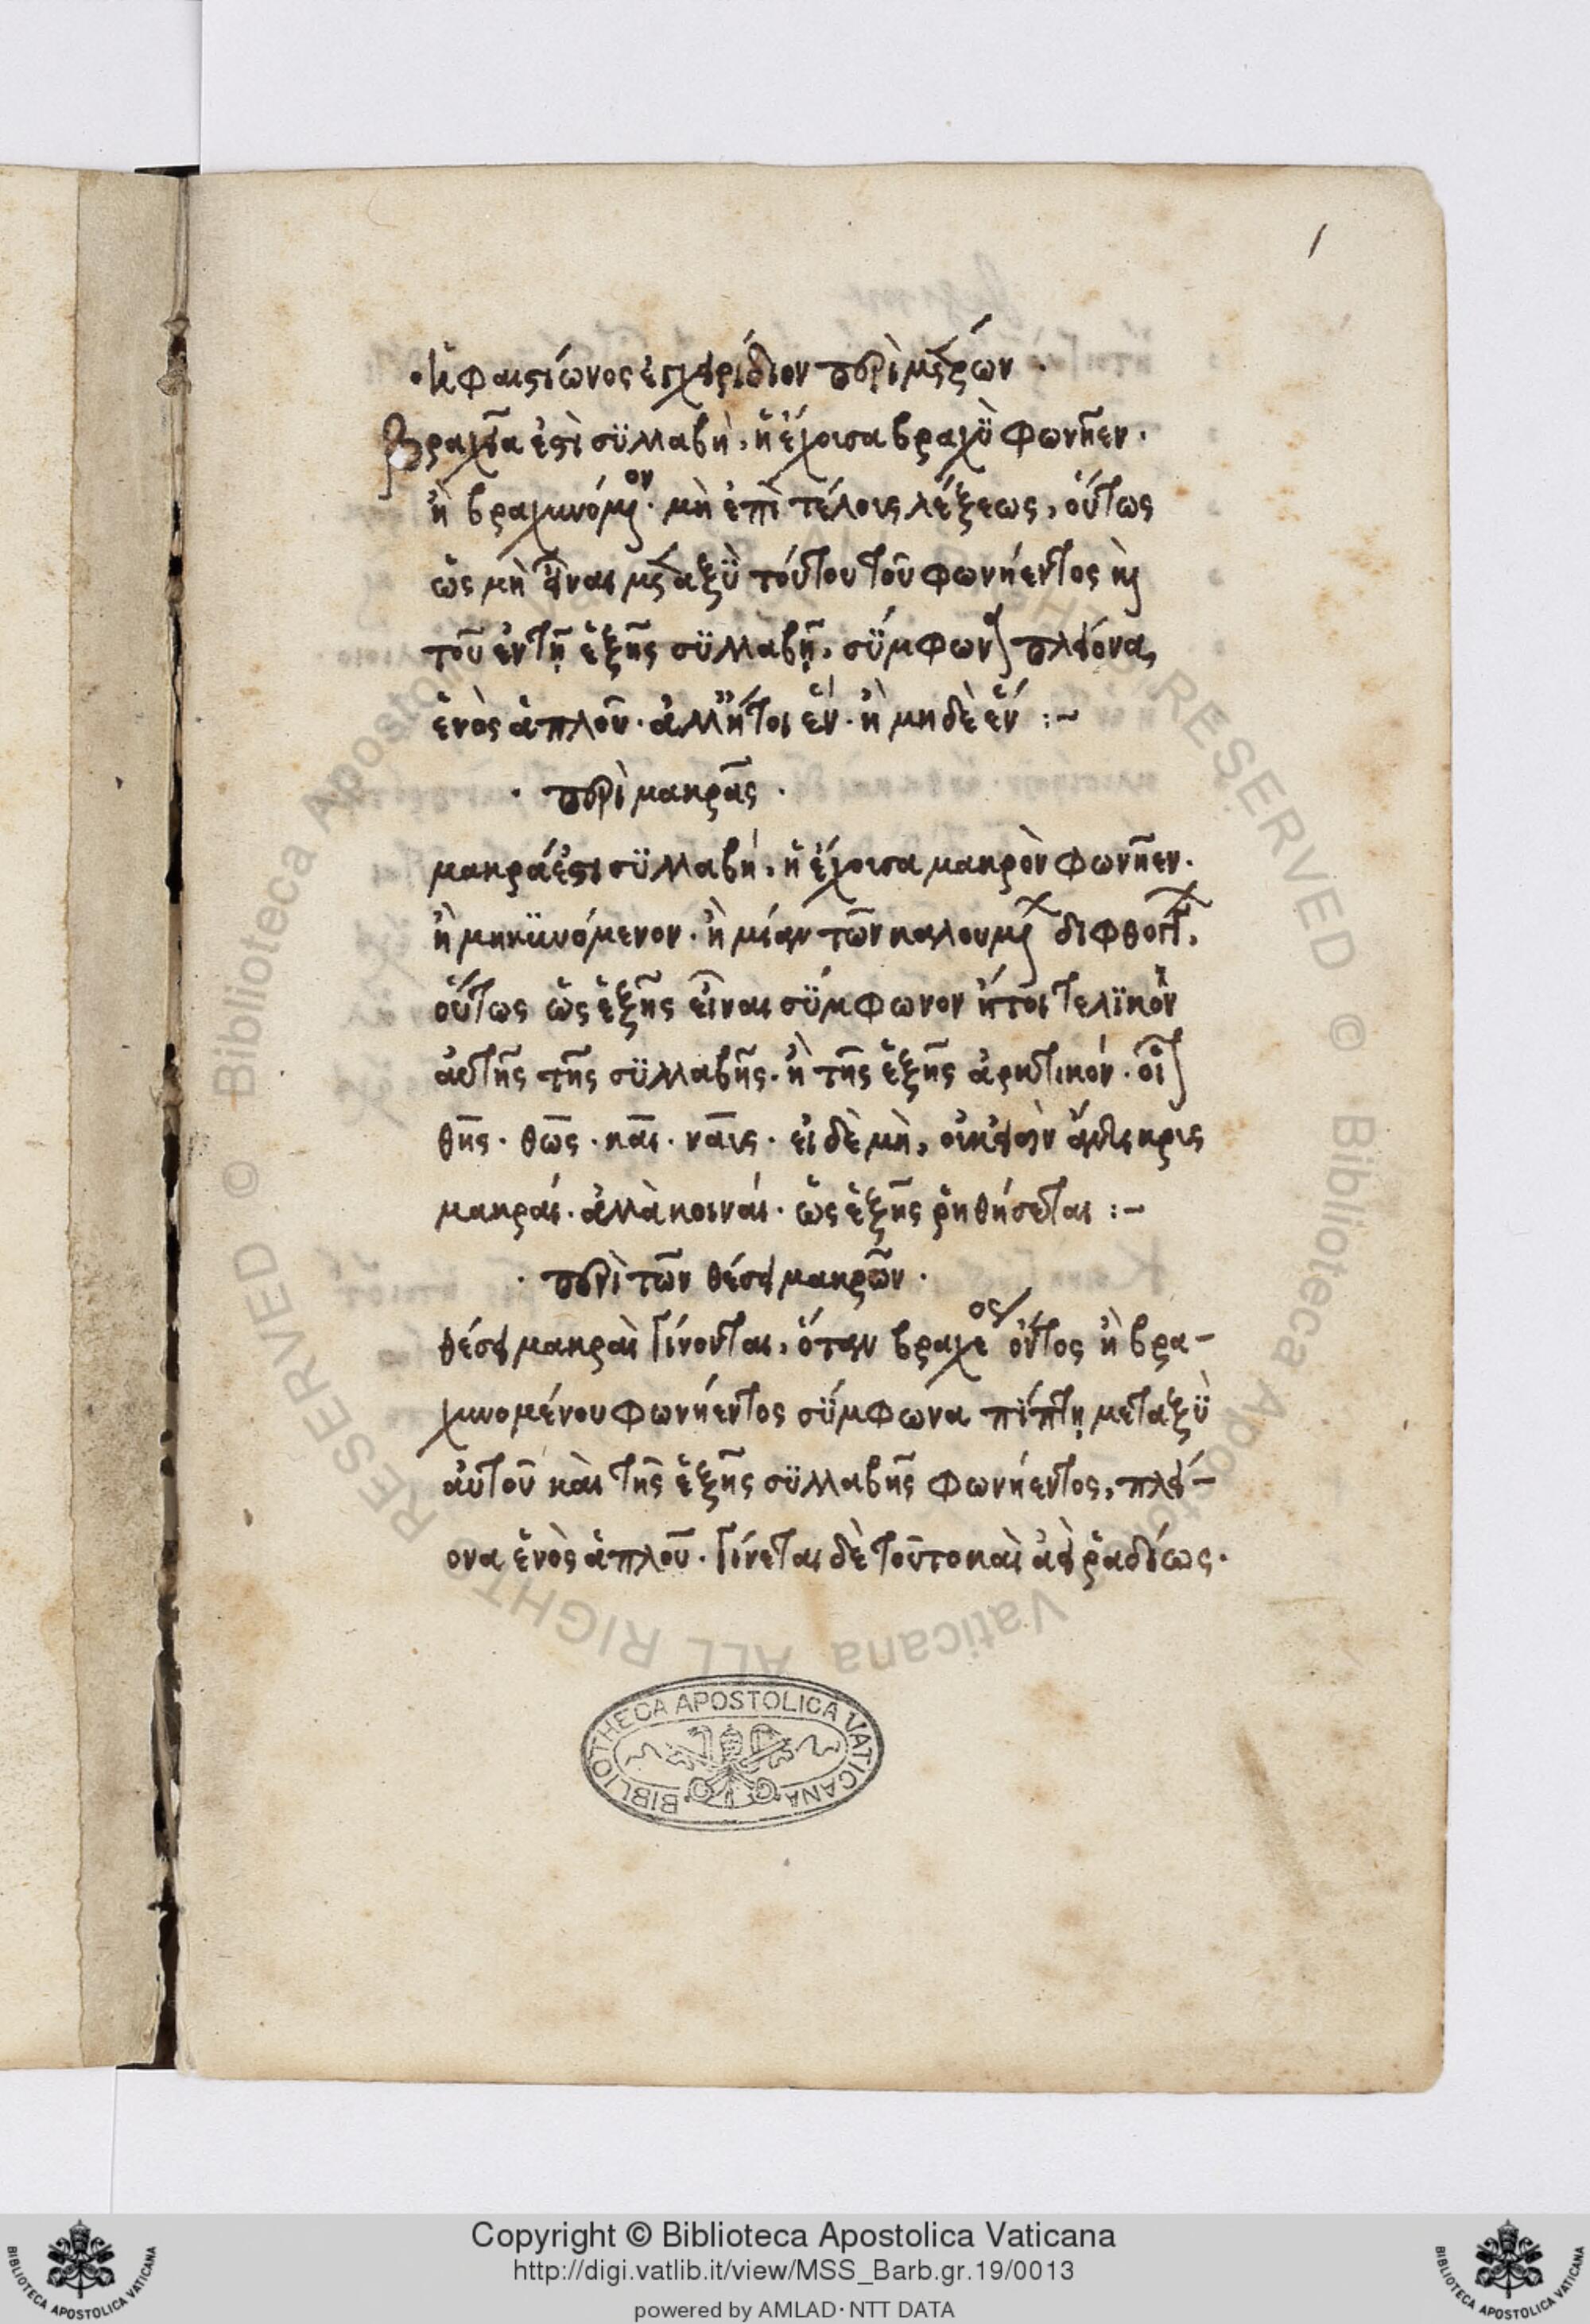 1
· Ἡφαιστίωνος ἐγχειρίδιον περὶ μέτρων ·
Βραχεῖα ἐστὶ συλλαβὴ, ἡ ἔχουσα βραχὺ φωνῆεν ·
ἢ βραχυνόμενον · μὴ ἐπὶ τέλους λέξεως, οὕτως
ὡς μὴ εἶναι μεταξὺ τούτου τοῦ φωνήεντος καὶ
τοῦ ἐν τῇ ἑξῆς συλλαβῇ, σύμφωνα πλείονα,
ἑνὸς ἁπλοῦ · ἀλλ' ἤτοι ἕν · ἢ μηδὲ ἕν :~
· περὶ μακρᾶς ·
μακρά ἐστι συλλαβή, ἡ ἔχουσα μακρὸν φωνῆεν ·
ἢ μηκυνόμενον · ἢ μίαν τῶν καλουμένων διφθόγγων,
οὕτως ὡς ἑξῆς εἶναι σύμφωνον ἤτοι τελικὸν
αὐτῆς τῆς συλλαβῆς · ἢ τῆς ἑξῆς ἀρκτικόν · οἷον
θῆς · θῶς · καῖ · ναῖς · εἰ δὲ μὴ, οὐκ εἰσὶν ἄντικρις
μακραί · ἀλλὰ κοιναί · ὡς ἑξῆς ῥηθήσεται :~
· περὶ τῶν θέσει μακρῶν ·
θέσει μακραὶ γίνονται, ὅταν βραχέος ὄντος ἢ βρα-
χυνομένου φωνήεντος σύμφωνα πίπτῃ μεταξὺ
αὐτοῦ καὶ τῆς ἑξῆς συλλαβῆς φωνήεντος, πλεί-
ονα ἑνὸς ἁπλοῦ · γίνεται δὲ τοῦτο κατὰ
BIBLIOTHECA APOSTOLICA VATICANA
© Biblioteca Apostolica Vaticana ALL RIGHTS RESERVED
© Biblioteca Apostolica Vaticana ALL RIGHTS RESERVED
Copyright © Biblioteca Apostolica Vaticana
http://digi.vatlib.it/view/MSS_Barb.gr.19/0013
powered by AMLAD · NTT DATA
BIBLIOTECA APOSTOLICA VATICANA
BIBLIOTECA APOSTOLICA VATICANA